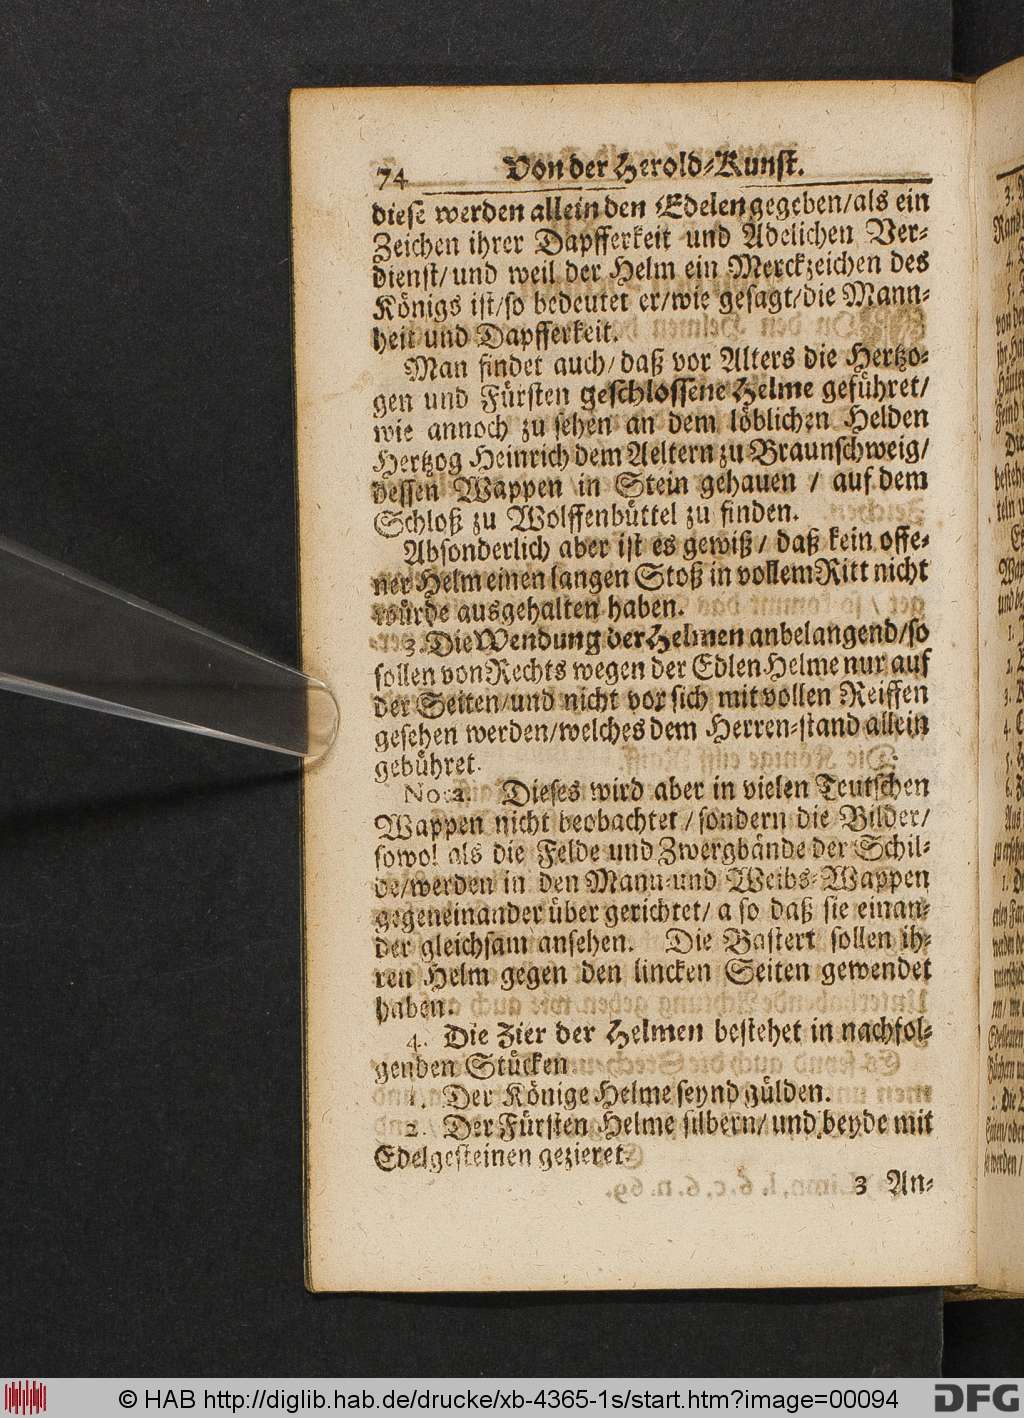 74 Von der Herold-Kunst.
diese werden allein den Edelen gegeben/als ein
Zeichen ihrer Dapfferkeit und Adelichen Ver-
dienst/und weil der Helm ein Merckzeichen des
Königs ist/so bedeutet er/wie gesagt/die Mann-
heit und Dapfferkeit.
Man findet auch/daß vor Alters die Hertzo-
gen und Fürsten geschlossene Helme geführet/
wie annoch zu sehen an dem löblichen Helden
Hertzog Heinrich dem Aeltern zu Braunschweig/
dessen Wappen in Stein gehauen / auf dem
Schloß zu Wolffenbüttel zu finden.
Absonderlich aber ist es gewiß/ daß kein offe-
ner Helm einen langen Stoß in vollem Ritt nicht
würde ausgehalten haben.
3. Die Wendung der Helmen anbelangend/so
sollen von Rechts wegen der Edlen Helme nur auf
der Seiten/und nicht vor sich mit vollen Reiffen
gesehen werden/welches dem Herren-stand allein
gebühret.
Nota. Dieses wird aber in vielen Teutschen
Wappen nicht beobachtet/sondern die Bilder/
sowol als die Felde und Zwergbände der Schil-
de/werden in den Mann-und Weibs-Wappen
gegeneinander über gerichtet/ a so daß sie einan-
der gleichsam ansehen. Die Bastert sollen ih-
ren Helm gegen den lincken Seiten gewendet
haben.
4. Die Zier der Helmen bestehet in nachfol-
genden Stücken
1. Der Könige Helme seynd gülden.
2. Der Fürsten Helme silbern/und beyde mit
Edelgesteinen gezieret.
3 An-
© HAB http://diglib.hab.de/drucke/xb-4365-1s/start.htm?image=00094
DFG